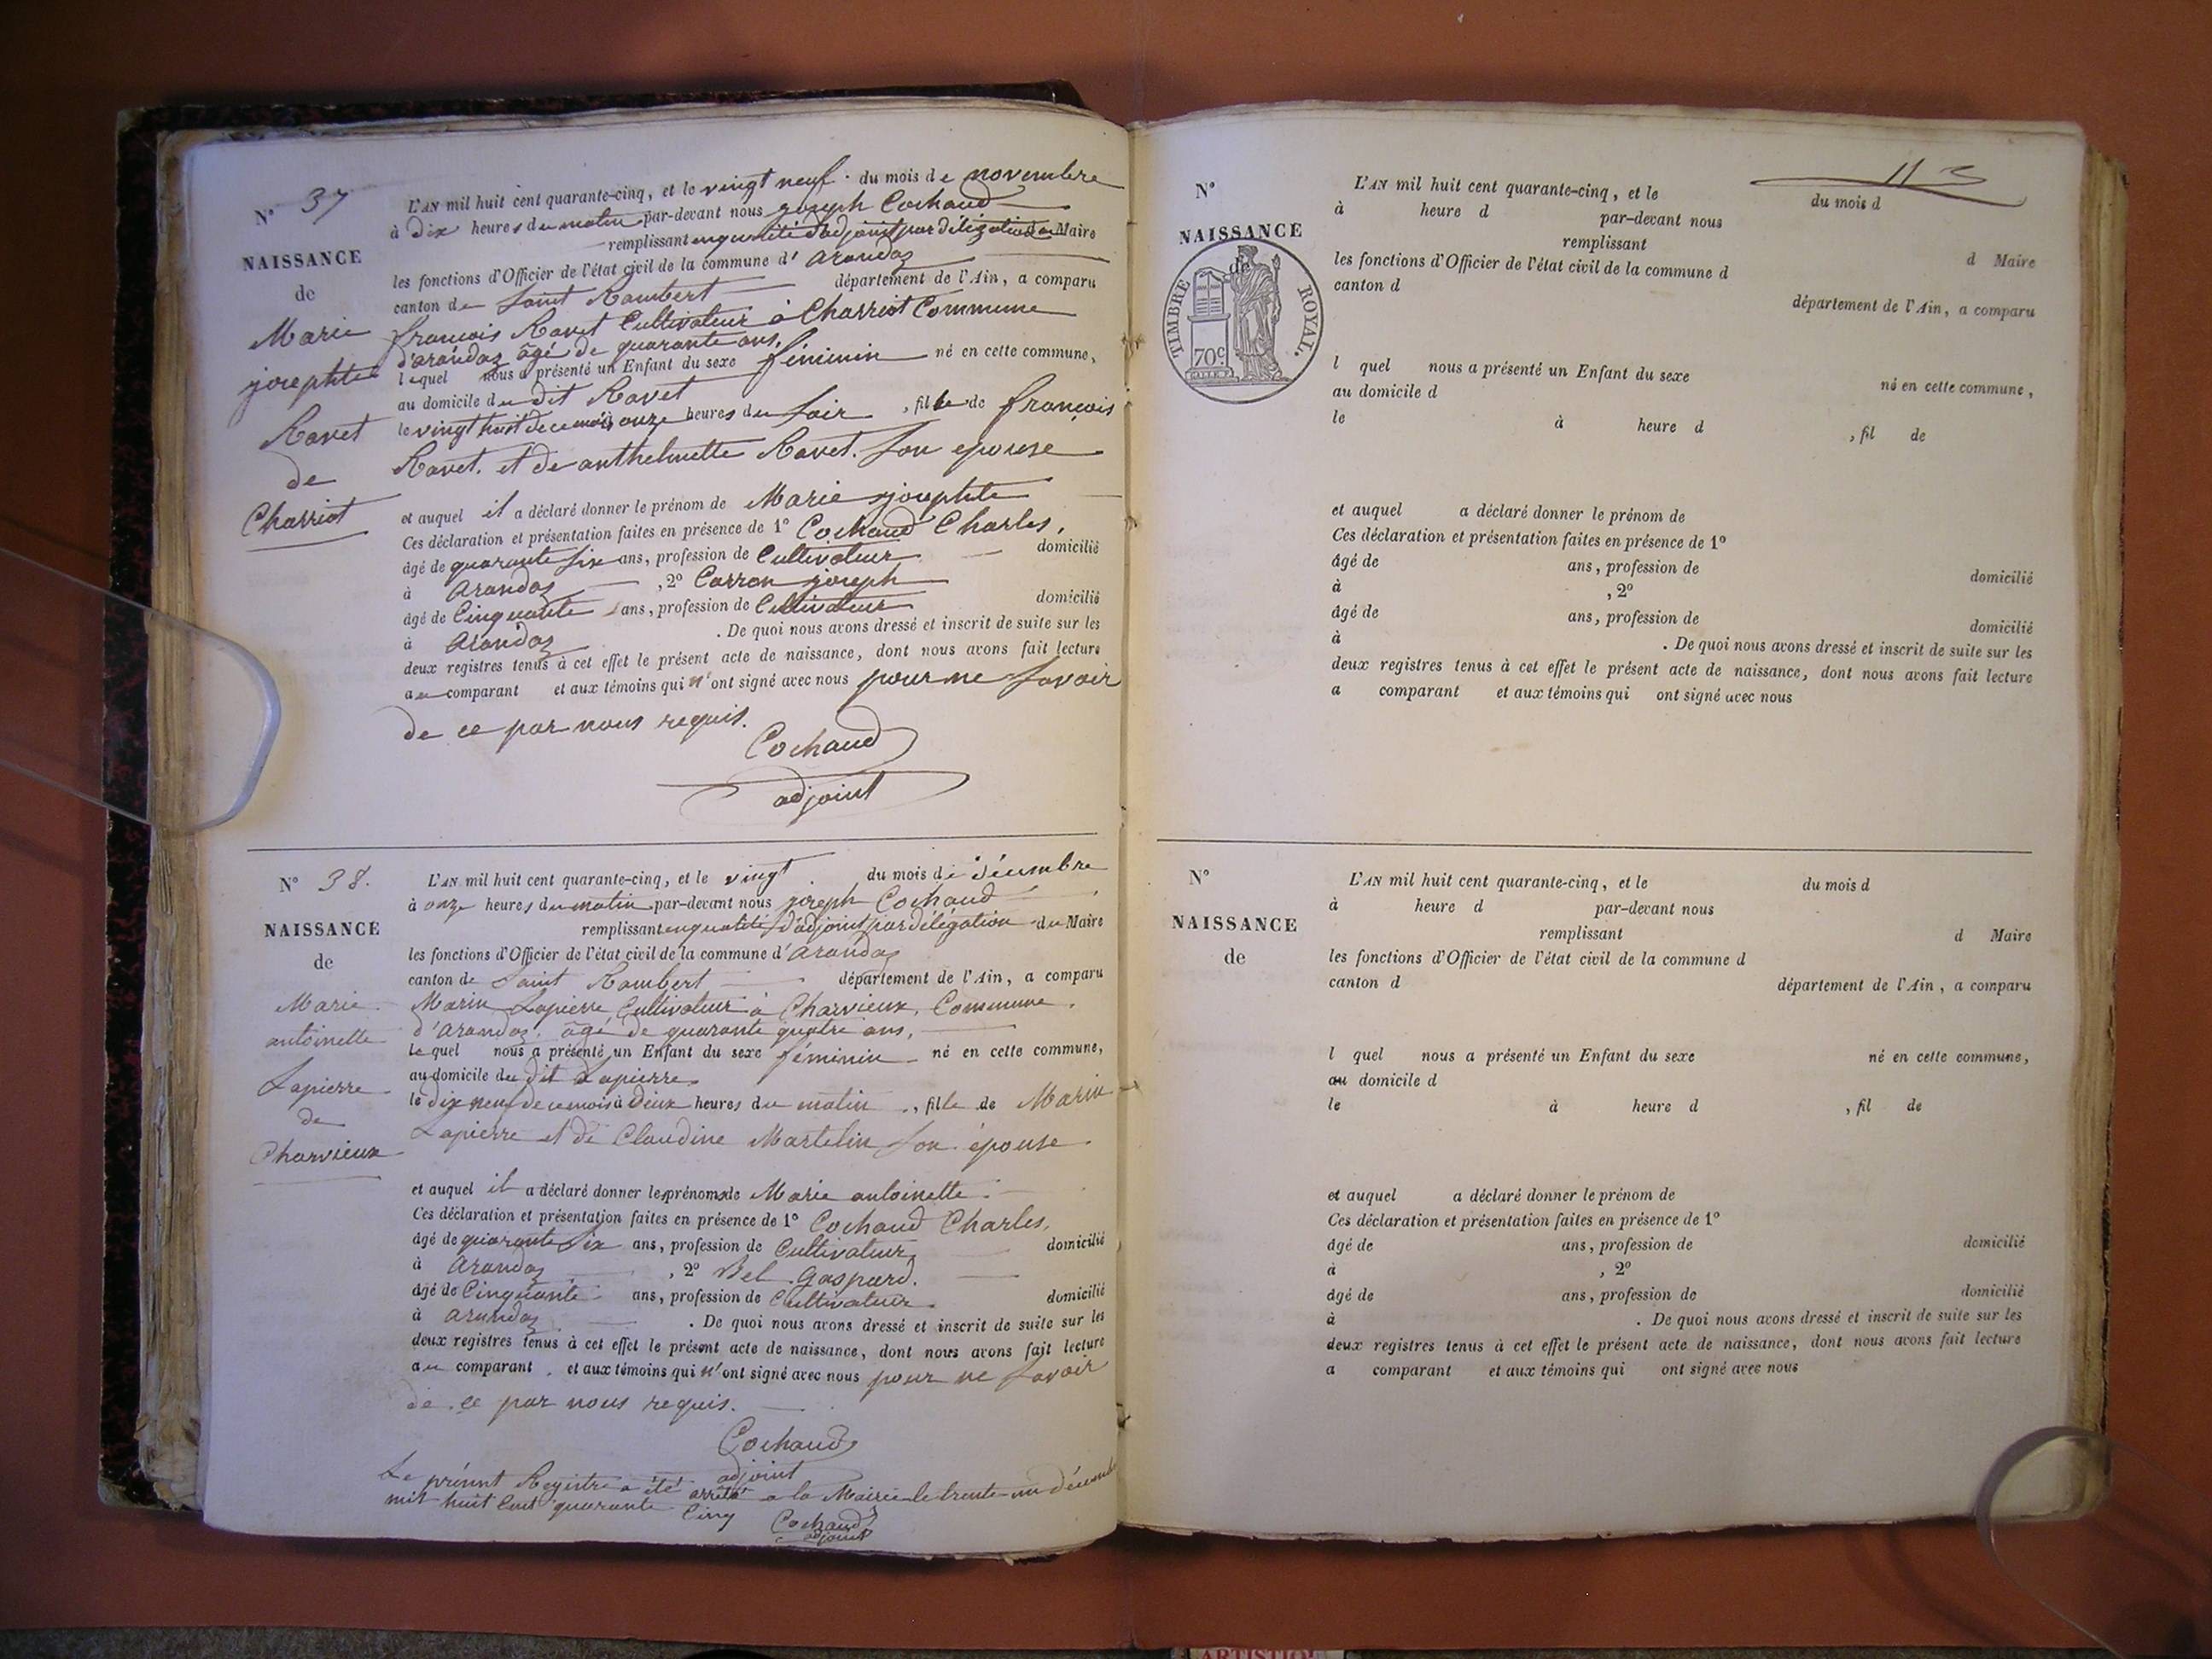 N° 37
NAISSANCE
de
Marie
josephte
Ravet
de
Charriot
L'AN mil huit cent quarante-cinq, et le vingt neuf. du mois de novembre
à dix heures du matin par-devant nous joseph Cochaud
remplissant en qualité d'adjoint par délégation du Maire
les fonctions d'Officier de l'état civil de la commune d'arandaz
canton de Saint Rambert département de l'Ain, a comparu
françois Ravet Cultivateur à Charriot Commune
d'arandaz âgé de quarante ans,
lequel nous a présenté un Enfant du sexe féminin né en cette commune,
au domicile du dit Ravet
le vingt huit de ce mois à onze heures du soir, fille de françois
Ravet. et de anthelmette Ravet. son epouse
et auquel il a déclaré donner le prénom de Marie josephte
Ces déclaration et présentation faites en présence de 1° Cochaud Charles,
âgé de quarante six ans, profession de Cultivateur domicilié
à Arandaz, 2° Carron joseph
âgé de Cinquante ans, profession de Cultivateur domicilié
à Arandaz. De quoi nous avons dressé et inscrit de suite sur les
deux registres tenus à cet effet le présent acte de naissance, dont nous avons fait lecture
au comparant et aux témoins qui n'ont signé avec nous pour ne savoir
de ce par nous requis.
Cochaud
adjoint
N° 38.
NAISSANCE
de
Marie
antoinette
Lapierre
de
Charvieux
L'AN mil huit cent quarante-cinq, et le vingt du mois de décembre
à onze heures du matin par-devant nous joseph Cochaud
remplissant en qualité d'adjoint par délégation du Maire
les fonctions d'Officier de l'état civil de la commune d'arandaz
canton de Saint Rambert département de l'Ain, a comparu
Marin Lapierre Cultivateur à Charvieux, Commune
d'arandaz. âgé de quarante quatre ans,
lequel nous a présenté un Enfant du sexe féminin né en cette commune,
au domicile du dit Lapierre
le dix neuf de ce mois à deux heures du matin, fille de Marin
Lapierre et de Claudine Martelin son épouse
et auquel il a déclaré donner les prénoms de Marie antoinette
Ces déclaration et présentation faites en présence de 1° Cochaud Charles,
âgé de quarante six ans, profession de Cultivateur domicilié
à Arandaz, 2° Bel Gaspard.
âgé de Cinquante ans, profession de Cultivateur. domicilié
à arandaz. De quoi nous avons dressé et inscrit de suite sur les
deux registres tenus à cet effet le présent acte de naissance, dont nous avons fait lecture
au comparant, et aux témoins qui n'ont signé avec nous pour ne savoir
de ce par nous requis.
Cochaud
adjoint
Le présent Registre a été arrêté a la Mairie le trente-un décembre
mil huit Cent quarante Cinq
Cochaud
adjoint
113
N°
NAISSANCE
de
TIMBRE ROYAL.
70c.
L'AN mil huit cent quarante-cinq, et le du mois d
à heure d par-devant nous
remplissant d Maire
les fonctions d'Officier de l'état civil de la commune d
canton d département de l'Ain, a comparu
l quel nous a présenté un Enfant du sexe né en cette commune,
au domicile d
le à heure d, fil de
et auquel a déclaré donner le prénom de
Ces déclaration et présentation faites en présence de 1°
âgé de ans, profession de domicilié
à, 2°
âgé de ans, profession de domicilié
à. De quoi nous avons dressé et inscrit de suite sur les
deux registres tenus à cet effet le présent acte de naissance, dont nous avons fait lecture
a comparant et aux témoins qui ont signé avec nous
N°
NAISSANCE
de
L'AN mil huit cent quarante-cinq, et le du mois d
à heure d par-devant nous
remplissant d Maire
les fonctions d'Officier de l'état civil de la commune d
canton d département de l'Ain, a comparu
l quel nous a présenté un Enfant du sexe né en cette commune,
au domicile d
le à heure d, fil de
et auquel a déclaré donner le prénom de
Ces déclaration et présentation faites en présence de 1°
âgé de ans, profession de domicilié
à, 2°
âgé de ans, profession de domicilié
à. De quoi nous avons dressé et inscrit de suite sur les
deux registres tenus à cet effet le présent acte de naissance, dont nous avons fait lecture
a comparant et aux témoins qui ont signé avec nous